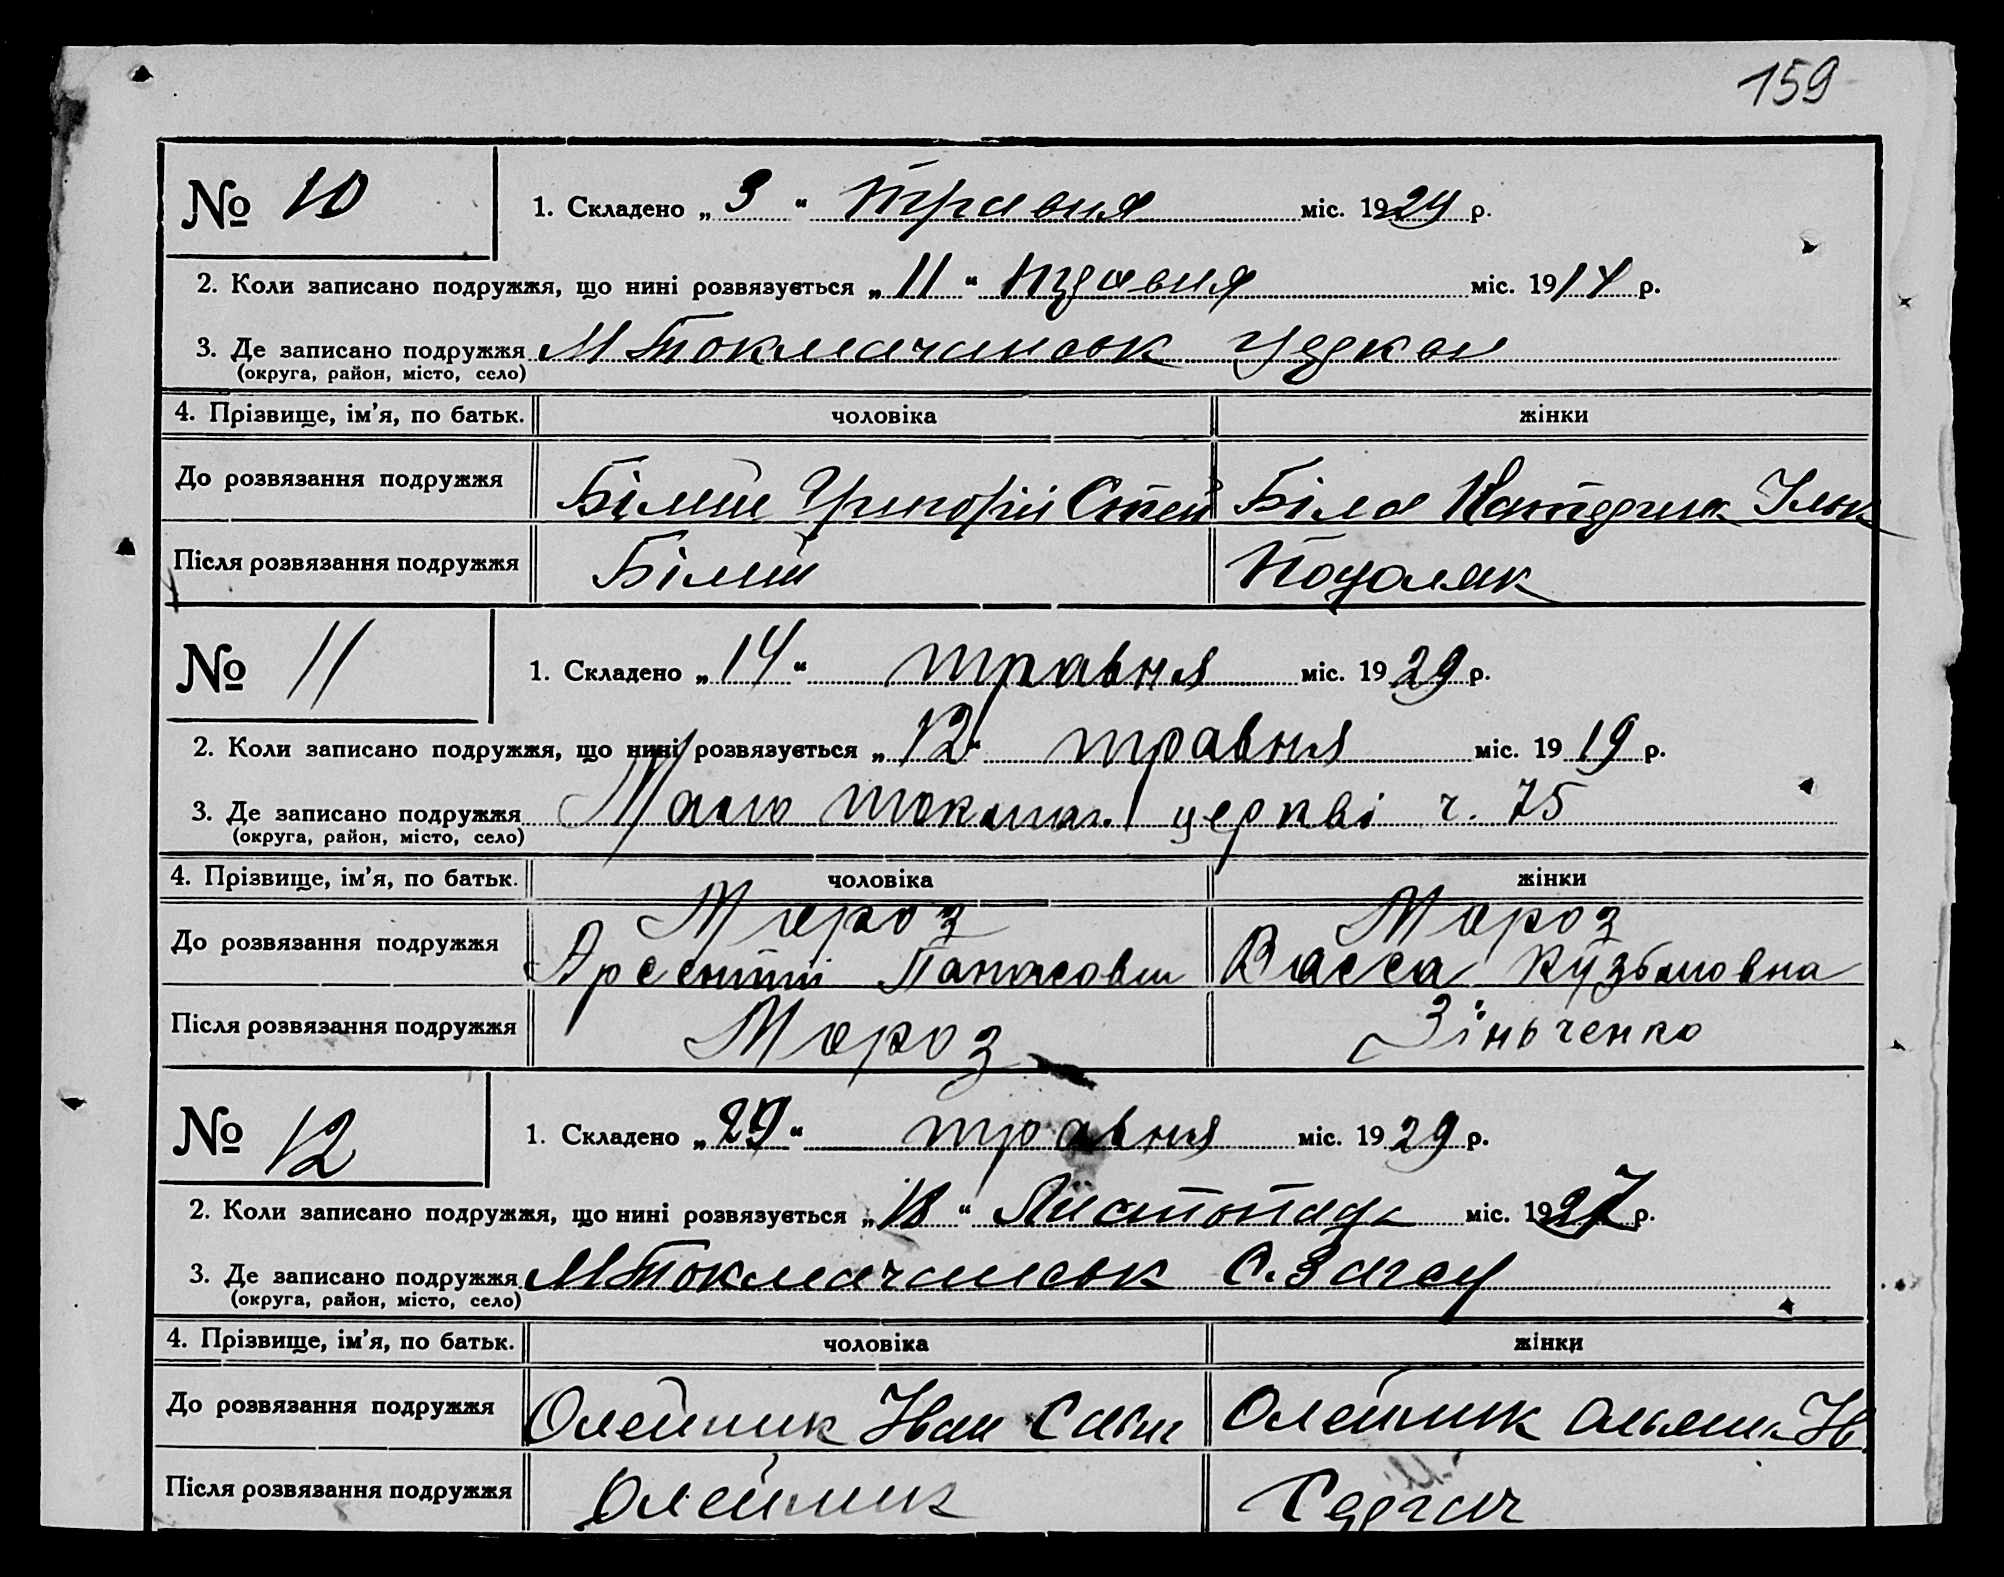 159
№ 10
1. Складено „ 3 “ травня міс. 1924 р.
2. Коли записано подружжя, що нині розвязується „ 11 “ травня міс. 1914 р.
3. Де записано подружжя М Токмачанськ церкви
(округа, район, місто, село)
4. Прізвище, ім’я, по батьк. чоловіка жінки
До розвязання подружжя Білий Григорій Степ Біла Ільк
Після розвязання подружжя Білий Подоляк
№ 11
1. Складено „ 14 “ травня міс. 1929 р.
2. Коли записано подружжя, що нині розвязується „ 12 “ травня міс. 1919 р.
3. Де записано подружжя Мало токмач. церкві ч. 75
(округа, район, місто, село)
4. Прізвище, ім’я, по батьк. чоловіка жінки
Мороз Мороз
До розвязання подружжя Арсентій Панасови Васса Кузьмовна
Після розвязання подружжя Мороз Зіньченко
№ 12
1. Складено „ 29 “ травня міс. 1929 р.
2. Коли записано подружжя, що нині розвязується „ “ Листопада міс. 1927 р.
3. Де записано подружжя М Токмачанськ С. Загсу
(округа, район, місто, село)
4. Прізвище, ім’я, по батьк. чоловіка жінки
До розвязання подружжя Олейник Іван Сави Олейник
Після розвязання подружжя Олейник Сергач